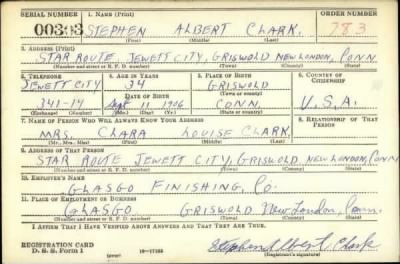 SERIAL NUMBER 1. NAME (Print) ORDER NUMBER
STEPHEN ALBERT CLARK. 783
(First) (Middle) (Last)
3. ADDRESS (Print)
STAR ROUTE JEWETT CITY, GRISWOLD NEW LONDON, CONN
(Number and street or R. F. D. number) (Town) (County) (State)
2. TELEPHONE 4. AGE IN YEARS 5. PLACE OF BIRTH 6. COUNTRY OF CITIZENSHIP
JEWETT CITY 34 GRISWOLD
DATE OF BIRTH (Town or county)
341-14 Sept 11 1906 CONN. U.S.A.
(Exchange) (Number) (Mo.) (Day) (Yr.) (State or country)
7. NAME OF PERSON WHO WILL ALWAYS KNOW YOUR ADDRESS 8. RELATIONSHIP OF THAT PERSON
MRS. CLARA LOUISE CLARK.
(Mr., Mrs., Miss) (First) (Middle) (Last)
9. ADDRESS OF THAT PERSON
STAR ROUTE JEWETT CITY, GRISWOLD NEW LONDON, CONN
(Number and street or R. F. D. number) (Town) (County) (State)
10. EMPLOYER'S NAME
GLASGO FINISHING, Co.
11. PLACE OF EMPLOYMENT OR BUSINESS
GLASGO GRISWOLD New London, Conn.
(Number and street or R. F. D. number) (Town) (County) (State)
I AFFIRM THAT I HAVE VERIFIED ABOVE ANSWERS AND THAT THEY ARE TRUE.
REGISTRATION CARD
D. S. S. Form 1 (over) Stephen Albert Clark
(Registrant's signature)